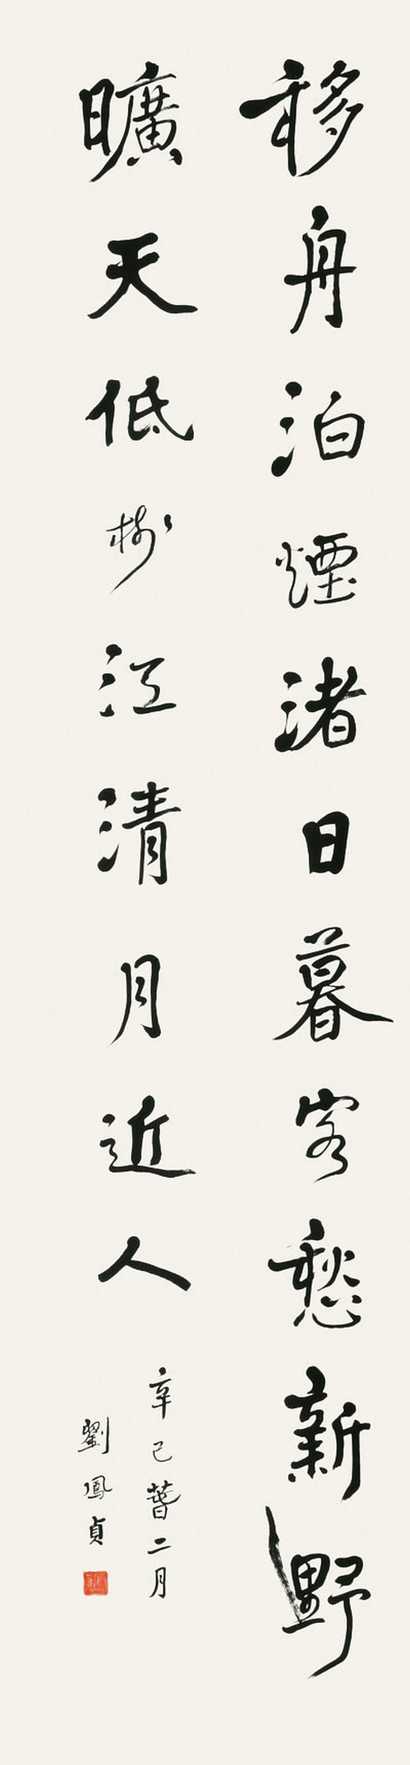 移舟泊煙渚日暮客愁新野
曠天低樹江清月近人
辛巳暮二月
劉鳳貞